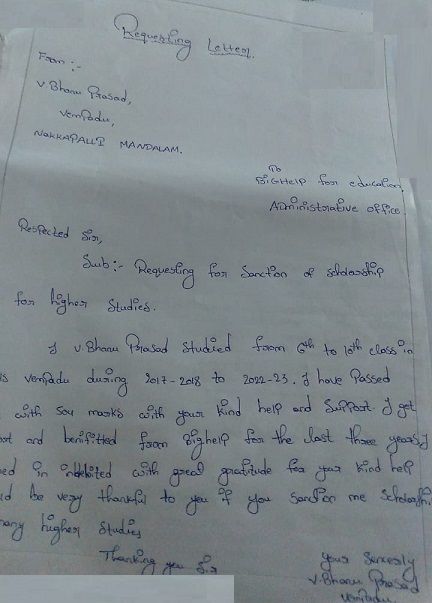 Requesting Letter.
From:-
V Bhanu Prasad,
Vempadu,
NAKKAPALLI MANDALAM.
To
BIGHelp for education,
Administrative office
Respected Sir,
Sub:- Requesting for Sanction of scholarship
for higher Studies.
I V. Bhanu Prasad Studied from 6th to 10th class in
vempadu during 2017-2018 to 2022-23. I have Passed
with 504 marks with your kind help and Support. I get
and benifitted from Bighelp for the last three years.
in indebited with great gratitude for your kind help
be very thankful to you if you sanction me Scholarshi
higher Studies
Thanking you Sir
your Sincerly
V. Bhanu Prasad
vempadu